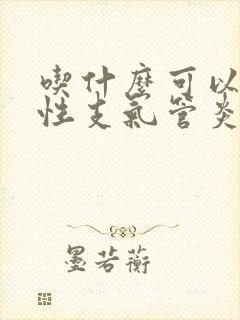 喫什麼可以
性支氣管炎
墨若蘅